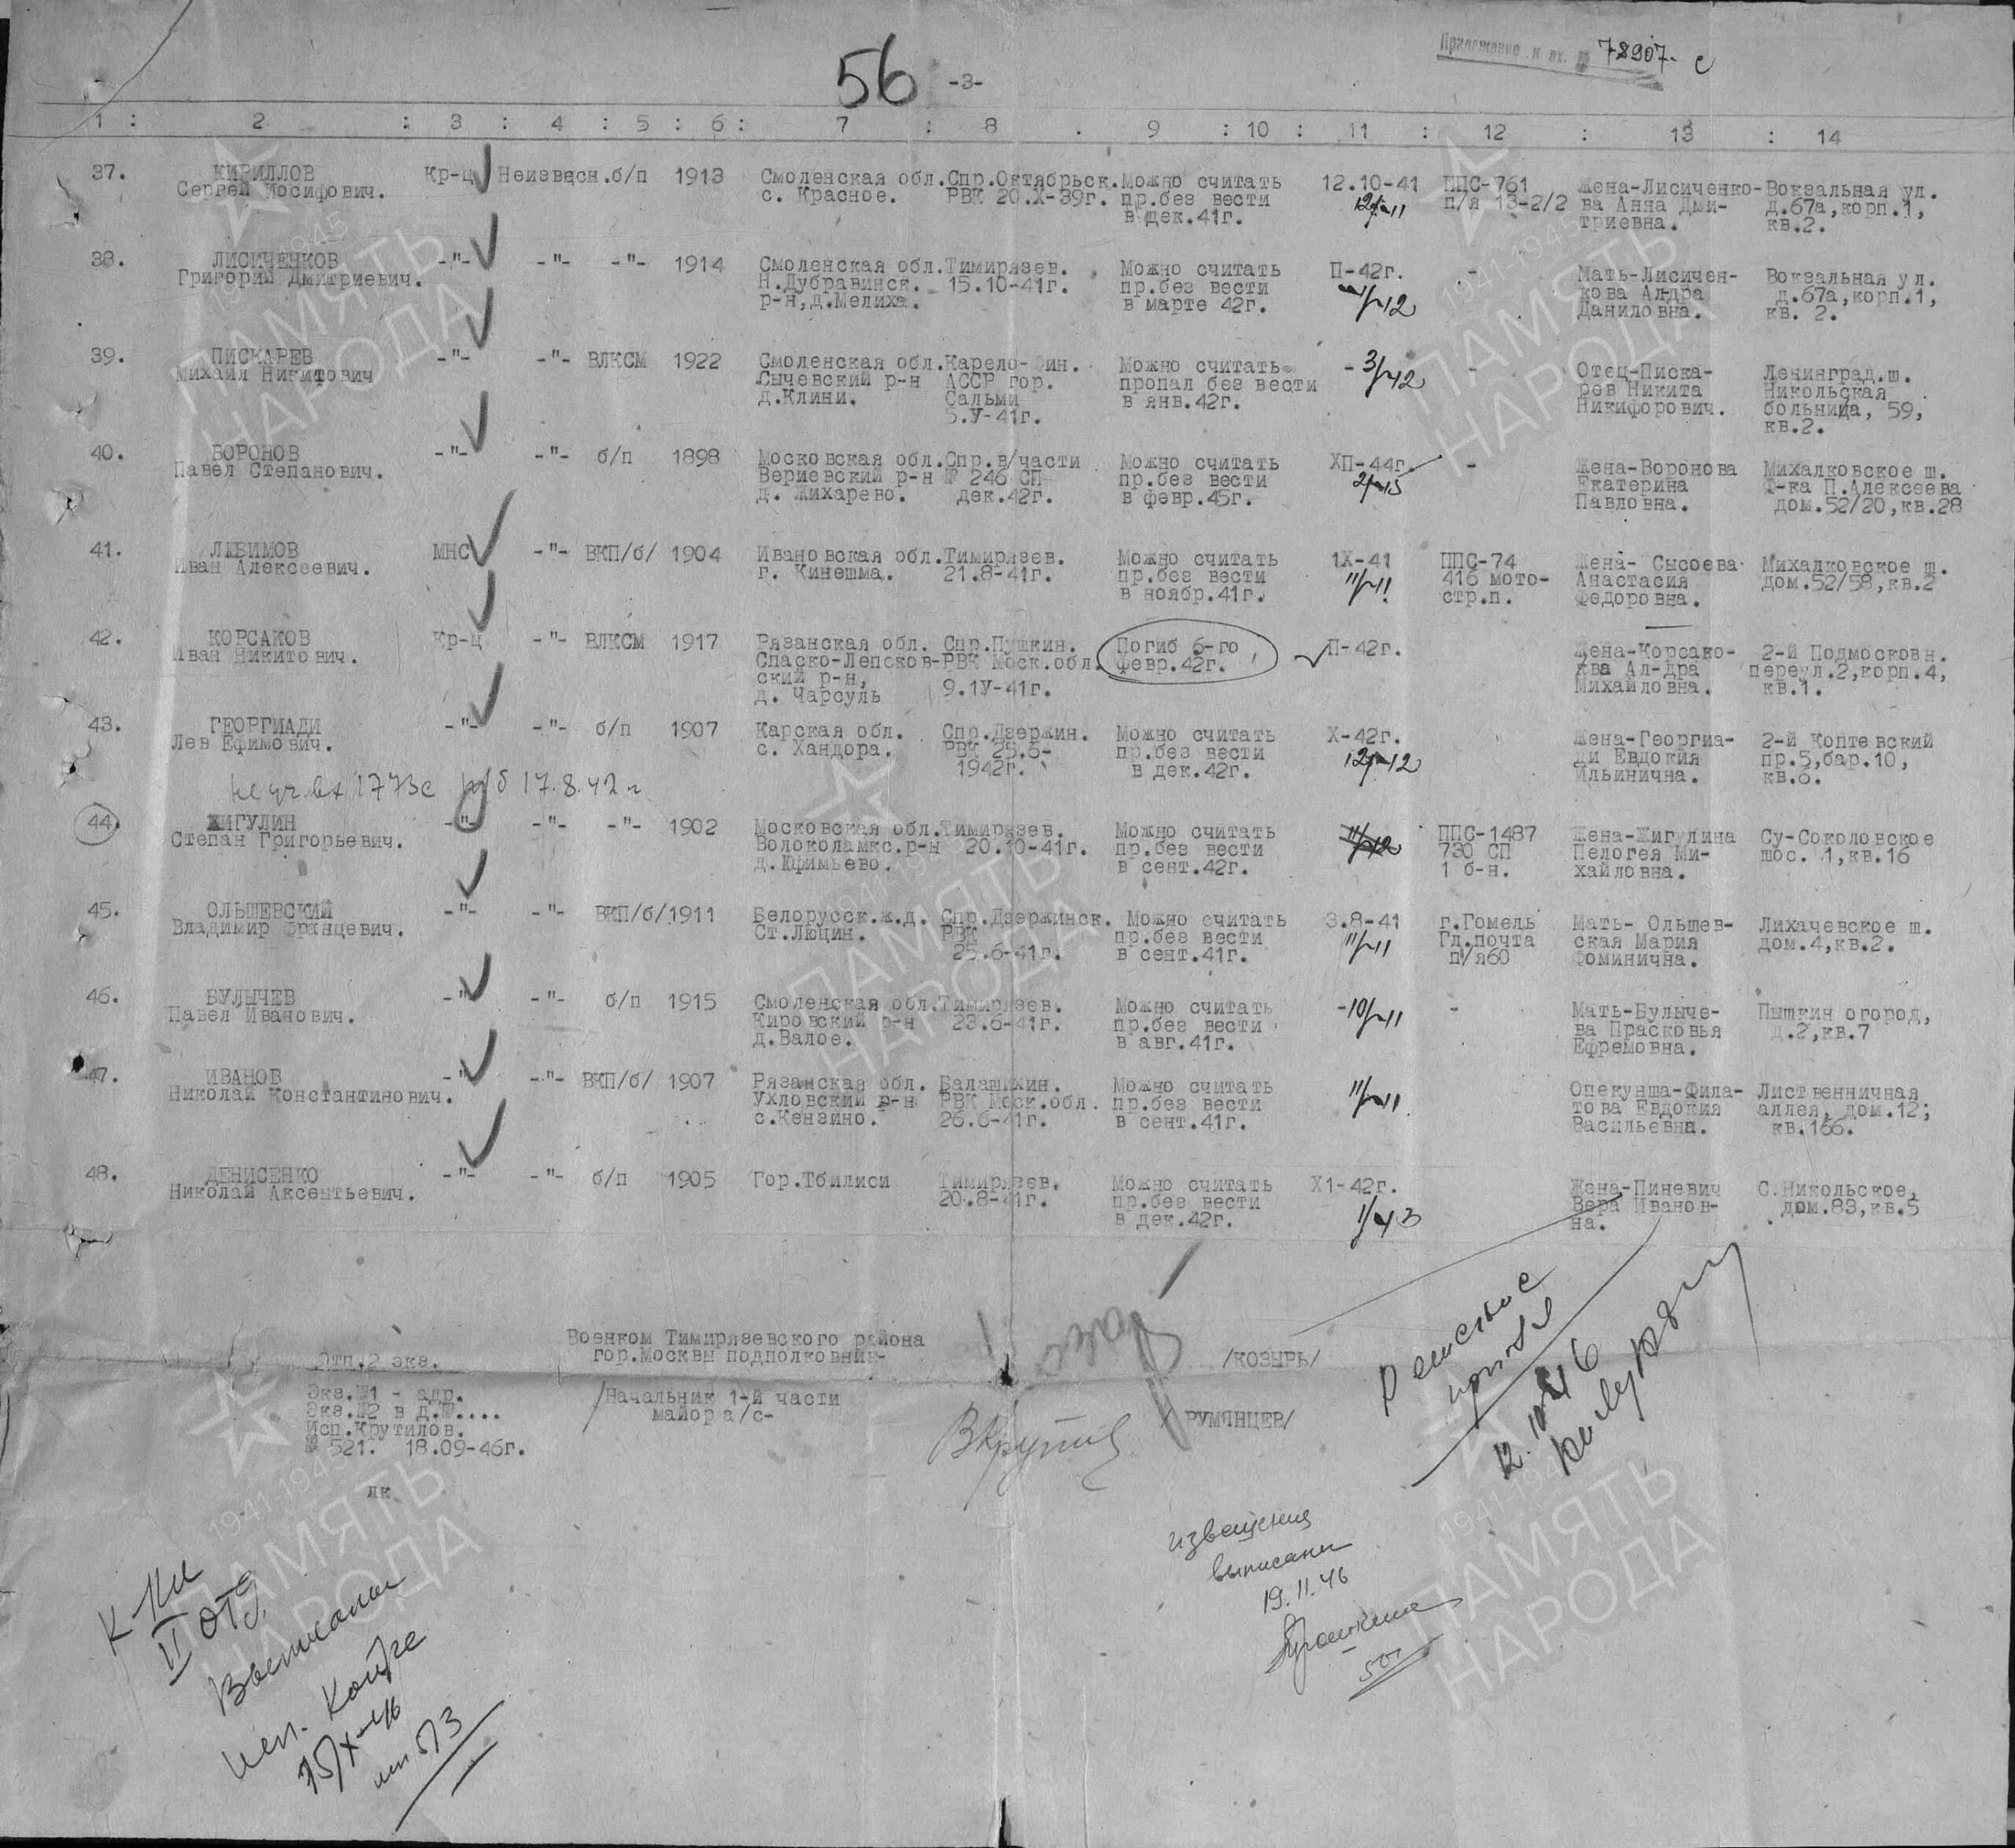 Приложение к вх. № 78907 с
56 -3-
1 : 2 : 3 : 4 : 5 : 6 : 7 : 8 . 9 : 10 : 11 : 12 : 13 : 14
37. КИРИЛЛОВ Кр-ц Неизвесн. б/п 1913 Смоленская обл. Спр.Октябрьск. Можно считать 12.10-41 ППС-761 Жена-Лисиченко- Вокзальная ул.
Сергей Иосифович. с. Красное. РВК 20.Х-39г. пр.без вести 12/-11 п/я 13-2/2 ва Анна Дми- д.67а,корп.1,
в дек.41г. триевна. кв.2.
38. ЛИСИЧЕНКОВ -"- -"- -"- 1914 Смоленская обл. Тимирязев. Можно считать П-42г. - Мать-Лисичен- Вокзальная ул.
Григорий Дмитриевич. Н.Дубравинск. 15.10-41г. пр.без вести кова Ал-дра д.67а,корп.1,
р-н,д.Мелиха. в марте 42г. Даниловна. кв. 2.
39. ПИСКАРЕВ -"- -"- ВЛКСМ 1922 Смоленская обл. Карело-Фин. Можно считать - 3/-42 - Отец-Писка- Ленинград.ш.
Михаил Никитович Сычевский р-н АССР гор. пропал без вести рев Никита Никольская
д.Клини. Сальми в янв.42г. Никифорович. больница, 59,
5.У-41г. кв.2.
40. ВОРОНОВ -"- -"- б/п 1898 Московская обл. Спр.в/части Можно считать ХП-44г. - Жена-Воронова Михалковское ш.
Павел Степанович. Вериевский р-н № 246 СП пр.без вести Екатерина Ф-ка П.Алексеева
д. Жихарево. дек.42г. в февр.45г. Павловна. дом.52/20,кв.28
41. ЛЮБИМОВ МНС -"- ВКП/б/ 1904 Ивановская обл. Тимирязев. Можно считать 1Х-41 ППС-74 Жена- Сысоева Михалковское ш.
Иван Алексеевич. г. Кинешма. 21.8-41г. пр.без вести 11/-11 416 мото- Анастасия дом.52/58,кв.2
в ноябр.41г. стр.п. Федоровна.
42. КОРСАКОВ Кр-ц -"- ВЛКСМ 1917 Рязанская обл. Спр.Пушкин. Погиб 6-го П-42г. Жена-Корсако- 2-й Подмосковн.
Иван Никитович. Спаско-Лепсков- РВК Моск.обл. февр.42г. ква Ал-дра переул.2,корп.4,
ский р-н, Михайловна. кв.1.
д. Чарсуль 9.1У-41г.
43. ГЕОРГИАДИ -"- -"- б/п 1907 Карская обл. Спр.Дзержин. Можно считать Х-42г. Жена-Георгиа- 2-й Коптевский
Лев Ефимович. с. Хандора. РВК 25.6- пр.без вести 12/-12 ди Евдокия пр.5,бар.10,
1942г. в дек.42г. Ильинична. кв.6.
вх 1773с 17.8.42 г
44. ЖИГУЛИН -"- -"- -"- 1902 Московская обл. Тимирязев. Можно считать ППС-1487 Жена-Жигулина Су-Соколовское
Степан Григорьевич. Волоколамкс.р-н 20.10-41г. пр.без вести 730 СП Пелогея Ми- шос. 1,кв.16
д.Юфимьево. в сент.42г. 1 б-н. хайловна.
45. ОЛЬШЕВСКИЙ -"- -"- ВКП/б/ 1911 Белорусск.ж.д. Спр.Дзержинск. Можно считать 3.8-41 г.Гомель Мать- Ольшев- Лихачевское ш.
Владимир Францевич. Ст.Люцин. РВК пр.без вести 11/-11 Гл.почта ская Мария дом.4,кв.2.
25.6-41г. в сент.41г. п/я60 Фоминична.
46. БУЛЫЧЕВ -"- -"- б/п 1915 Смоленская обл. Тимирязев. Можно считать -10/-11 - Мать-Булыче- Пышкин огород,
Павел Иванович. Кировский р-н 23.6-41г. пр.без вести ва Прасковья д.2,кв.7
д.Валое. в авг.41г. Ефремовна.
47. ИВАНОВ -"- -"- ВКП/б/ 1907 Рязанская обл. Балашихин. Можно считать 11/-11 Опекунша-Фила- Лиственничная
Николай Константинович. Ухловский р-н РВК Моск.обл. пр.без вести това Евдокия аллея, дом.12;
с.Кензино. 26.6-41г. в сент.41г. Васильевна. кв.166.
48. ДЕНИСЕНКО -"- -"- б/п 1905 Гор.Тбилиси Тимирязев. Можно считать Х1-42г. Жена-Пиневич С.Никольское,
Николай Аксентьевич. 20.8-41г. пр.без вести 1/43 Вера Иванов- дом.83,кв.5
в дек.42г. на.
Военком Тимирязевского района
гор.Москвы подполковник- /КОЗЫРЬ/
Отп.2 экз.
Экз.№1 - адр. /Начальник 1-й части
Экз.№2 в д.№.... майор а/с- /РУМЯНЦЕВ/
Исп.Крутилов.
№ 521. 18.09-46г.
лк
12.10.46
извещения
выписаны
19.11.46
К-ки
II отд.
Выписаны
исп.
15/X-46
1941-1945
ПАМЯТЬ
НАРОДА